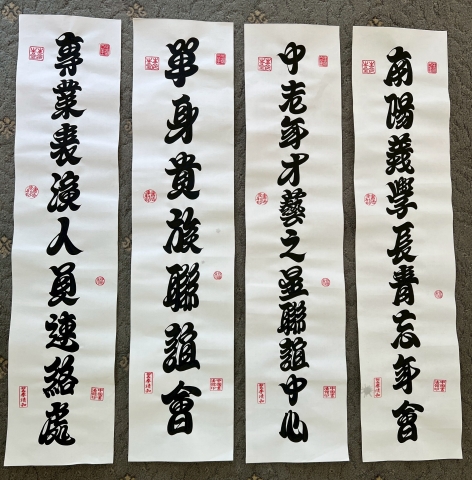 南陽義學長青忘年會
中老年才藝之星聯誼中心
單身貴族聯誼會
專業表演人員連絡處